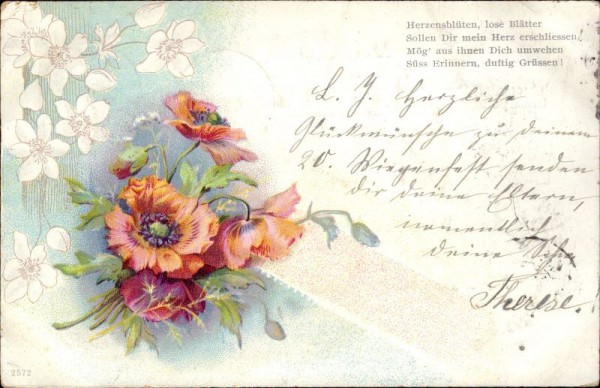 Herzensblüten, lose Blätter
Sollen Dir mein Herz erschliessen,
Mög' aus ihnen Dich umwehen
Süss Erinnern, duftig Grüssen!
L. J. Herzliche
Glückwünsche zu deinem
20. Wiegenfest senden
dir deine Eltern,
namentlich
deine
Therese.
2572